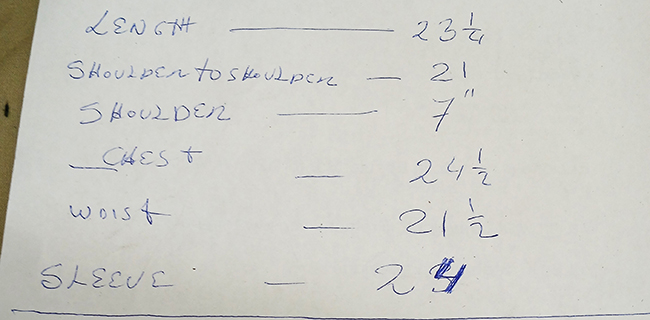 LENGTH — 23 1/4
SHOULDER TO SHOULDER — 21
SHOULDER — 7"
CHEST — 24 1/2
WOIST — 21 1/2
SLEEVE — 24